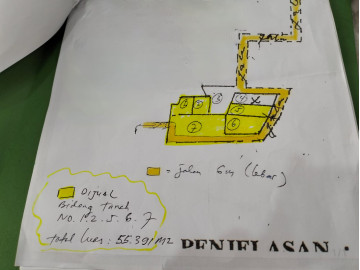 1
2
3
(4)
5
6
7
= jalan 6m (lebar)
DIJUAL
Bidang Tanah
NO. 1.2.5.6.7
Total Luas : 55.391 M2
PENJELASAN :